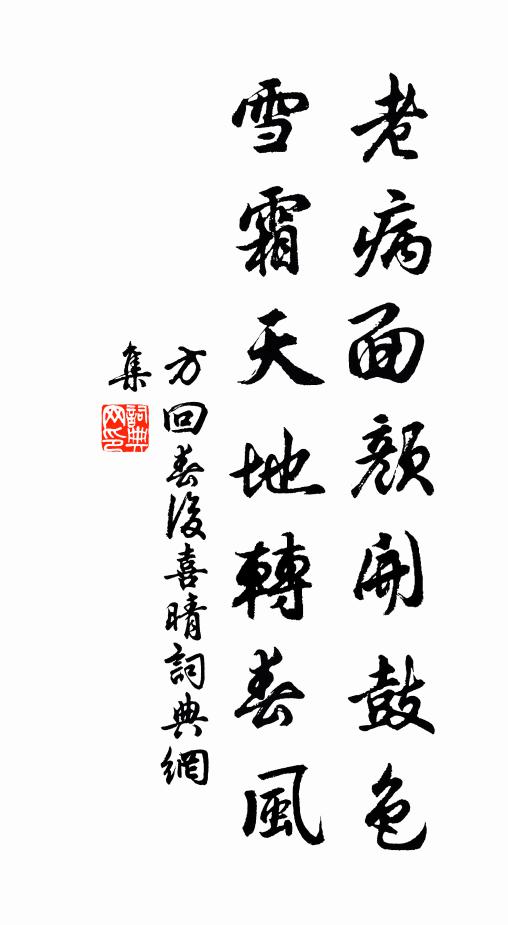 老病面顏開鼓色
雪霜天地轉春風
方回春後喜晴詞典網
集
詞典
网印